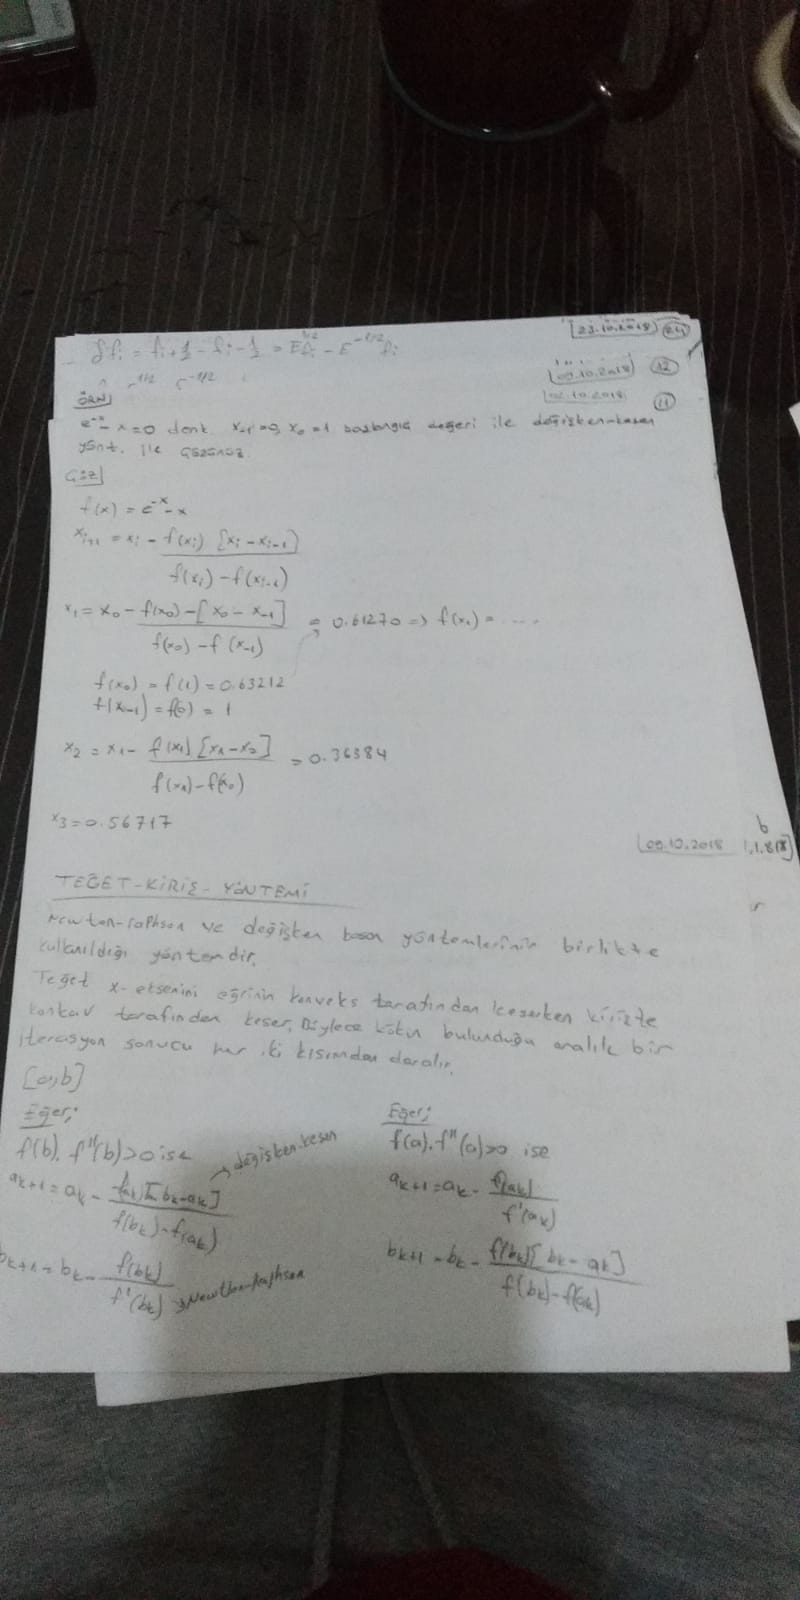 δfi = fi+1/2 - fi-1/2 = E^1/2 fi - E^-1/2 fi
[23.10.2018] 24
[09.10.2018] 12
[02.10.2018] 11
ÖRN/
e^-x - x = 0 denk. x-1 = 0, x0 = 1 başlangıç değeri ile değişken-kesen
yönt. ile çözünüz.
Çöz/
f(x) = e^-x - x
xi+1 = xi - f(xi) [xi - xi-1] / f(xi) - f(xi-1)
x1 = x0 - f(x0) - [x0 - x-1] / f(x0) - f(x-1) = 0.61270 => f(x1) = ....
f(x0) = f(1) = 0.63212
f(x0-1) = f(0) = 1
x2 = x1 - f(x1) [x1 - x0] / f(x1) - f(x0) = 0.36384
x3 = 0.56717
b
[09.10.2018 1.1.8
TEĞET-KİRİŞ-YÖNTEMİ
Newton-raphson ve değişken kesen yöntemlerinin birlikte
kullanıldığı yöntemdir.
Teğet x-eksenini eğrinin konveks tarafından keserken kirişte
konkav tarafından keser. Böylece kökün bulunduğu aralık bir
iterasyon sonucu her iki kısımdan daralır.
[a,b]
Eğer;
f(b). f''(b)>0 ise
ak+1 = ak - f(ak)[bk-ak] / f(bk)-f(ak) → değişken-kesen
bk+1 = bk - f(bk) / f'(bk) → Newton-Raphson
Eğer;
f(a).f''(a)>0 ise
ak+1 = ak - f(ak) / f'(ak)
bk+1 = bk - f(bk)[bk - ak] / f(bk)-f(ak)